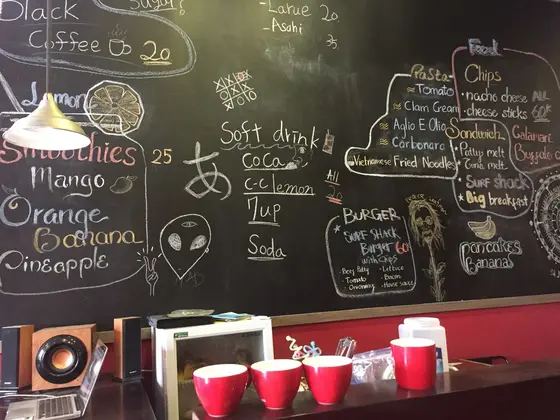 Black
Sugar?
Coffee 20
Lemon
Smoothies 25
Mango
Orange
Banana
Pineapple
-Larue 20
-Asahi
35
Soft drink
Coca
C-C lemon
7up
Soda
All
20
あ
Pasta
Tomato
Clam Cream
Aglio E Olio
Carbonara
Vietnamese Fried Noodles
Food
Chips
• nacho cheese
• cheese sticks
ALL
60
Sandwich
• Patty melt
• Tuna melt
SURF SHACK
Big breakfast
Calamari
Buffalo
BURGER
SURF SHACK
Burger 60
with chips
• Beef Patty
• Tomato
• Lettuce
• Bacon
• House sauce
pancakes
Bananas